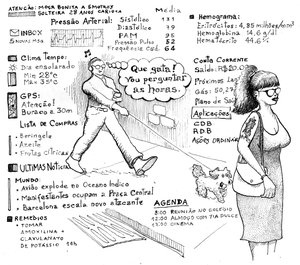 ATENÇÃO: MOÇA BONITA À 5 METROS
SOLTEIRA 28 ANOS CARIOCA
INBOX
5 NOVAS MSG
Média
Pressão Arterial:
Sistólico 131
Diastólico 79
PAM 96
Pressão Pulso 52
Frequência Card. 64
Hemograma:
Eritrócitos: 4,85 milhões/mm³
Hemoglobina 14,6 g/dl
Hematócrito 44.6%
Clima Tempo:
Dia ensolarado
Min 28°c
Max 35°c
GPS:
Atenção!
Buraco a 30m
Lista de Compras
Berinjela
Azeite
Frutas Cítricas
Que gata!
Vou perguntar
as horas.
Conta Corrente
Saldo: R$20.0
Próximos La
Gás:
Luz:
Plano de Saú
Aplicações
CDB
RDB
Ações Ordiná
Últimas Notícias
Mundo:
Avião explode no Oceano Índico
Manifestantes ocupam a Praça Central
Barcelona escala novo atacante
Remédios
Tomar
Amoxilina +
Clavulanato
de Potássio 10h
Agenda
8:00 Reunião no Colégio
12:00 Almoço com Tia Dulce
17:00 Cinema